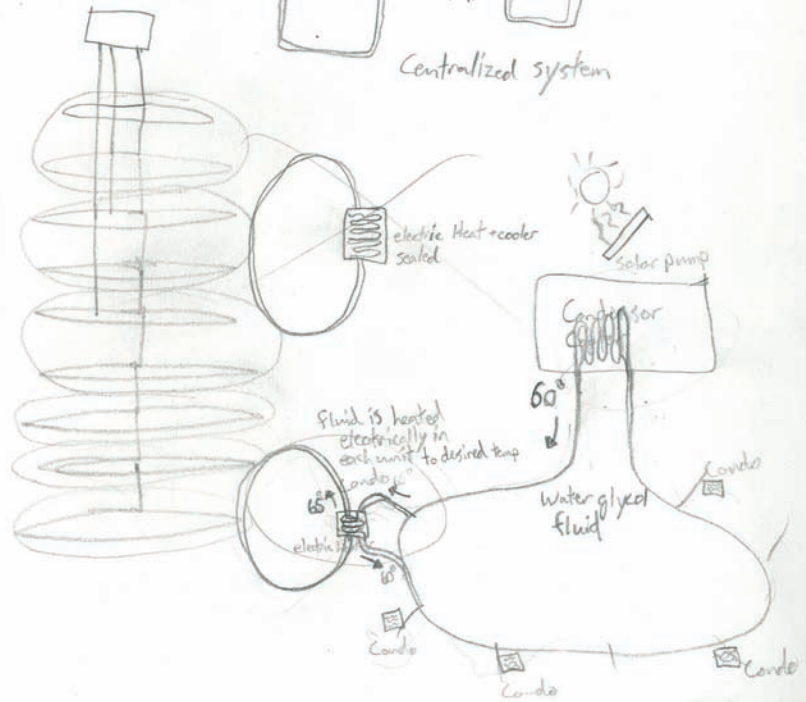 Centralized system
electric Heat + cooler
sealed
solar pump
Condensor
60°
fluid is heated
electrically in
each unit to desired temp
Condo
65°
electric
60°
Water glycol
fluid
Condo
Condo
Condo
Condo